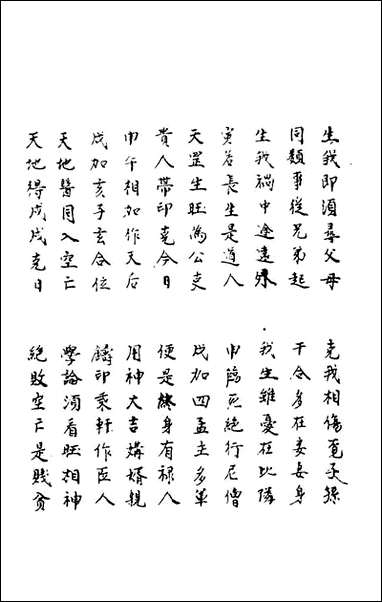 生我即須尋父母 克我相傷覓子孫
同類事從兄弟起 干合多在妻妾身
生我禍中途遠外 我生雖憂在比隣
寅為長生是道人 申爲死絕行尼僧
天罡生旺為公吏 戌加四孟主多軍
貴人帶印克今日 便是終身有祿人
申午相加作天后 用神大吉媾婚親
戌加亥子玄合位 鑄印乘軒作臣人
天地醫同入空亡 學論須看旺相神
天地得戌戌克日 絕敗空亡是賤貧